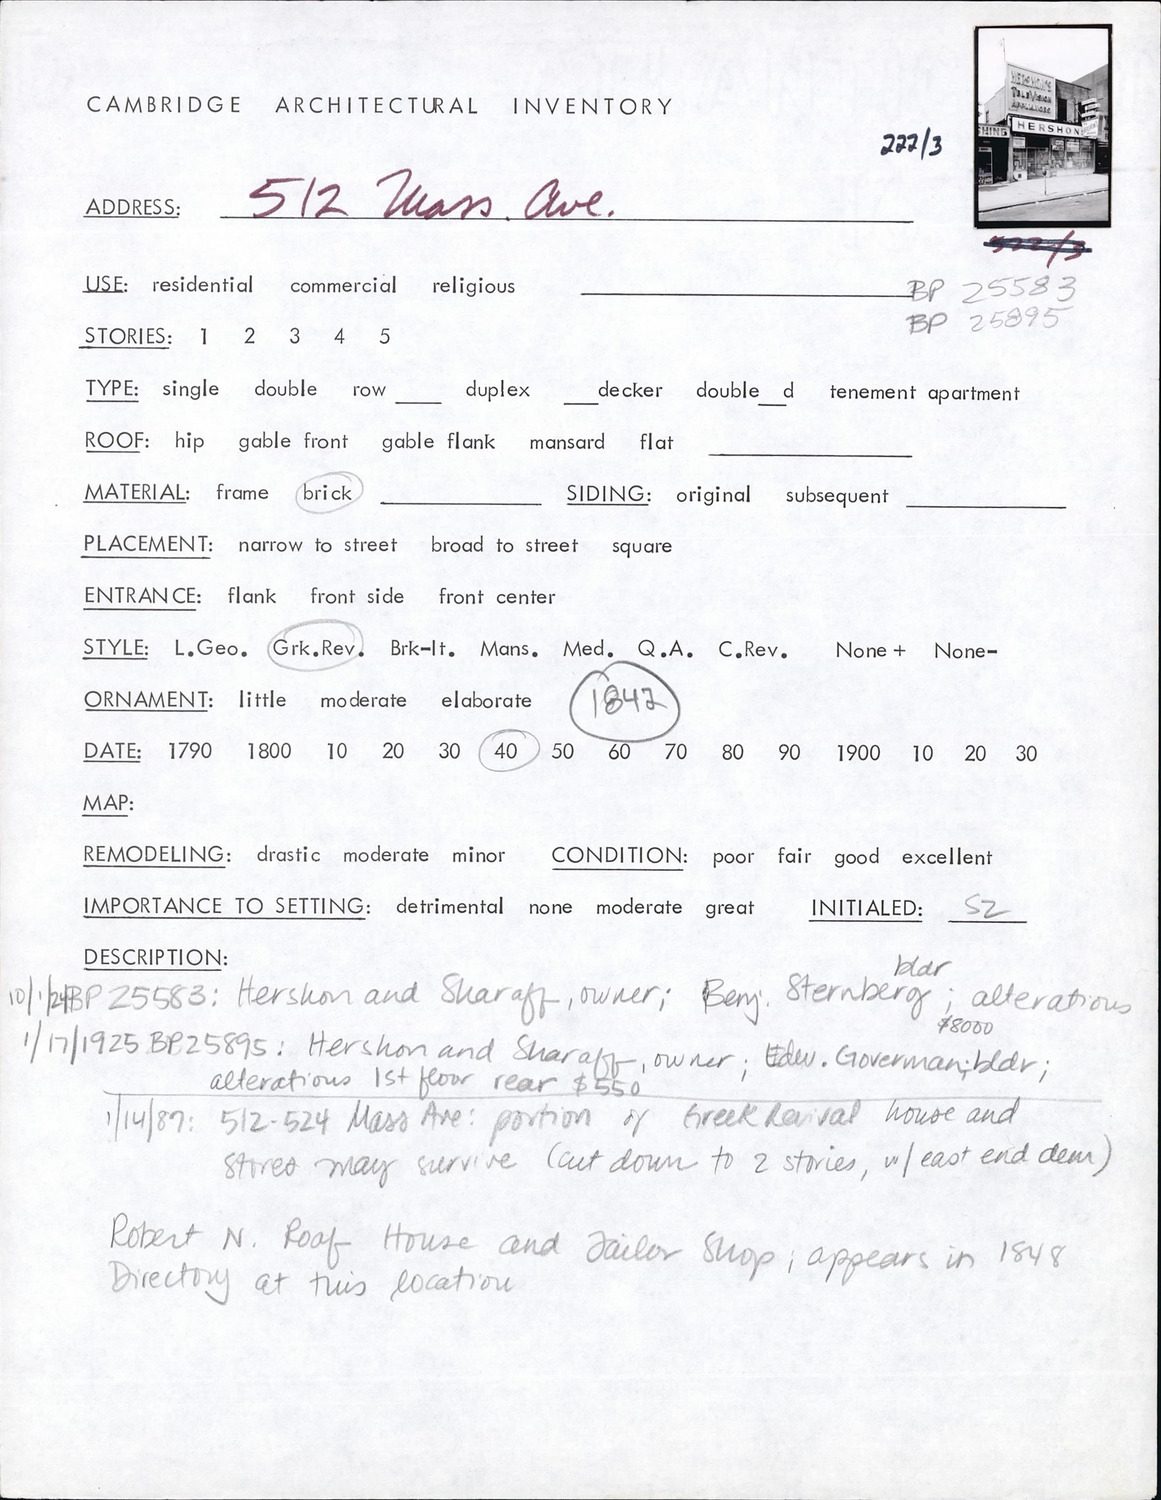 CAMBRIDGE ARCHITECTURAL INVENTORY
HERSHON'S
TELEVISION
APPLIANCES
HING HERSHON
222/3
ADDRESS: 512 Mass. Ave.
USE: residential commercial religious
BP 25583
BP 25895
STORIES: 1 2 3 4 5
TYPE: single double row ____ duplex ___decker double__d tenement apartment
ROOF: hip gable front gable flank mansard flat
MATERIAL: frame brick SIDING: original subsequent
PLACEMENT: narrow to street broad to street square
ENTRANCE: flank front side front center
STYLE: L.Geo. Grk.Rev. Brk-It. Mans. Med. Q.A. C.Rev. None+ None-
ORNAMENT: little moderate elaborate 1842
DATE: 1790 1800 10 20 30 40 50 60 70 80 90 1900 10 20 30
MAP:
REMODELING: drastic moderate minor CONDITION: poor fair good excellent
IMPORTANCE TO SETTING: detrimental none moderate great INITIALED: SZ
DESCRIPTION:
bldr
10/1/24 BP 25583: Hershon and Sharaff, owner; Benj. Sternberg; alterations
$8000
1/17/1925 BP25895: Hershon and Sharaff, owner; Edw. Goverman; bldr;
alterations 1st floor rear $550
1/14/87: 512-524 Mass Ave: portion of Greek Revival house and
stores may survive (cut down to 2 stories, w/ east end dem)
Robert N. Roaf House and Tailor Shop; appears in 1848
Directory at this location